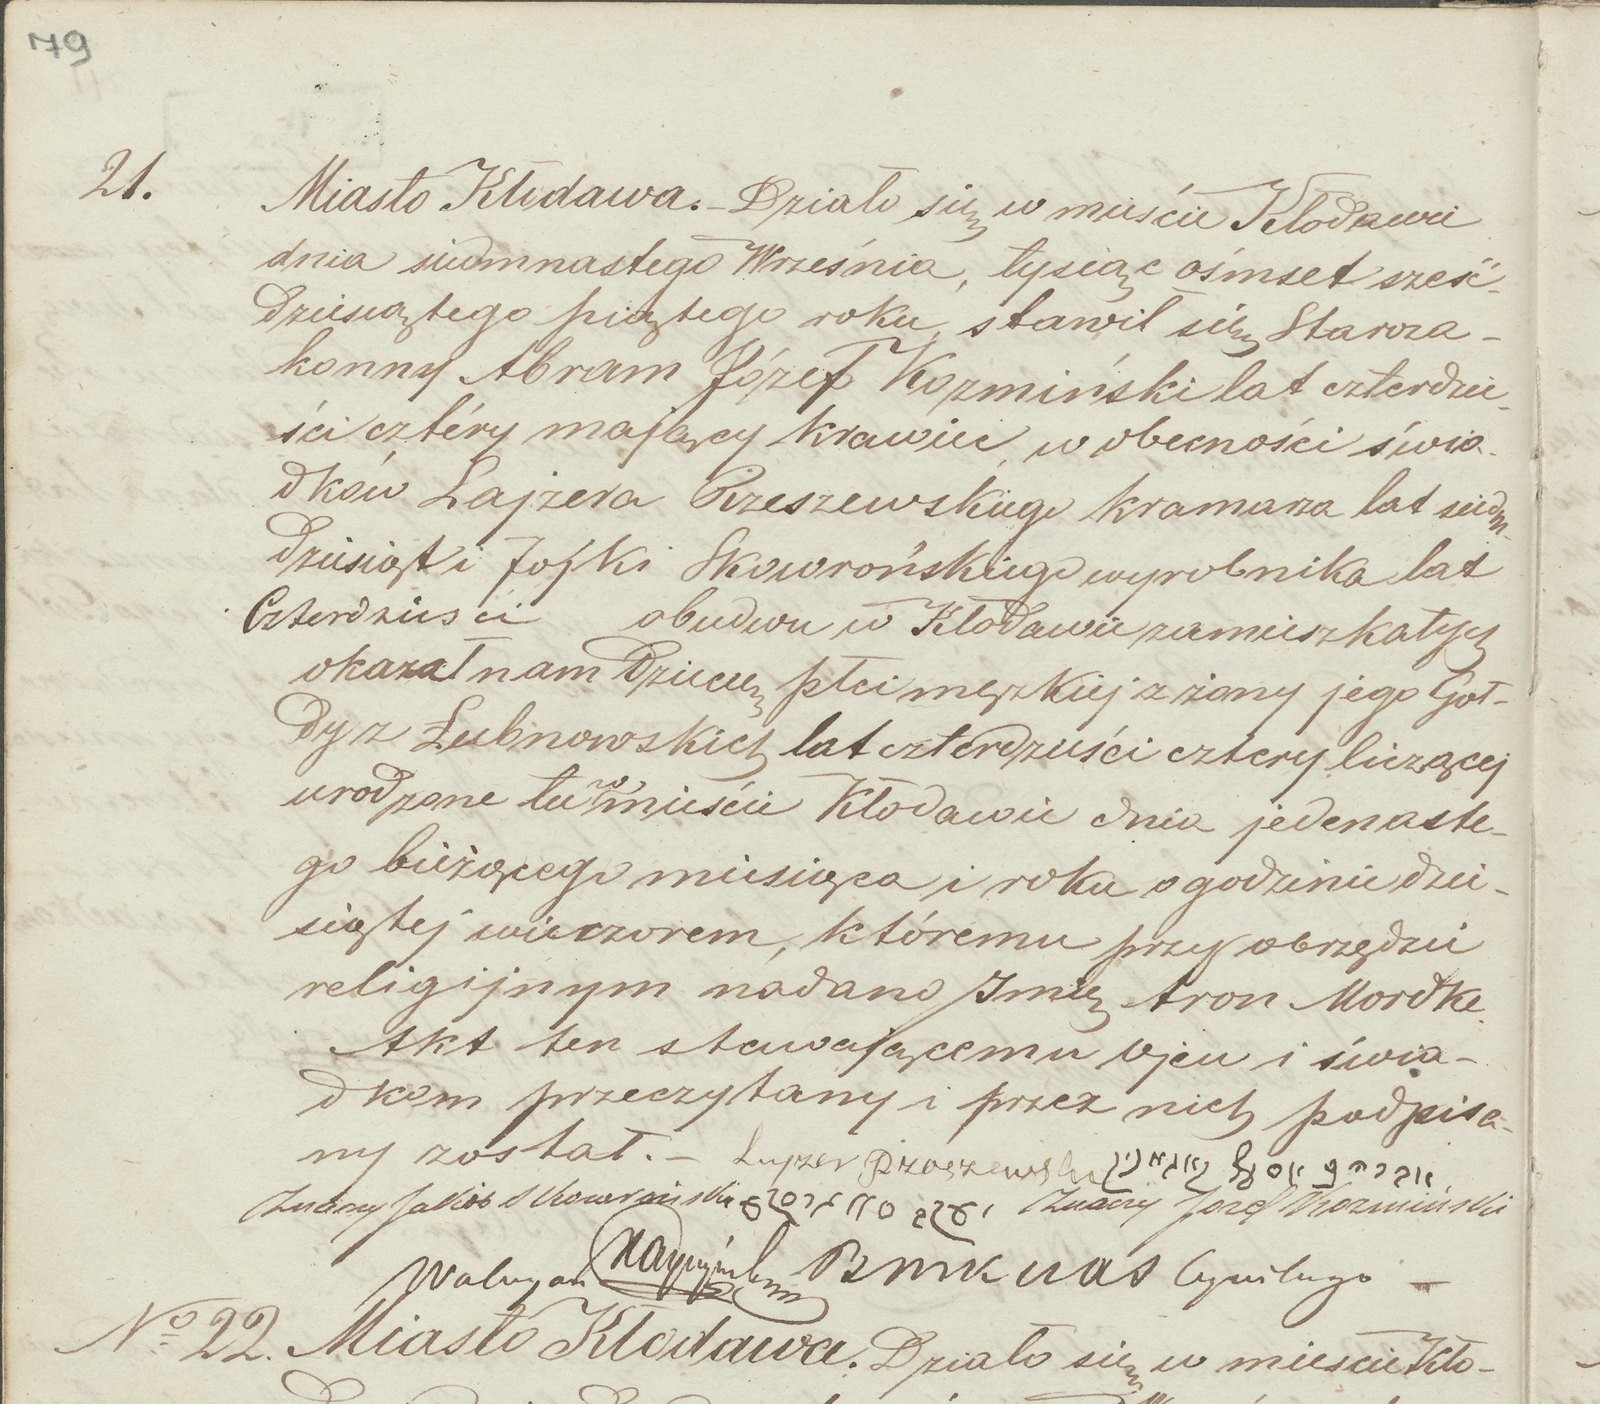 79
21. Miasto Kłodawa. – Działo się w mieście Kłodawie
dnia siedmnastego Września, tysiąc ośmset sześć-
dziesiątego piątego roku, stawił się Staroza-
konny Abram Józef Kozmiński lat czterdzie-
ści cztéry mający krawiec, w obecności świa-
dków Lajzera Przeszewskiego kramarza lat siedm-
dziesiąt i Joſki Skowrońskiego wyrobnika lat
Czterdzieści obudwu w Kłodawie zamieszkałych
okazał nam Dziecię płci męzkiej z żony jego Goł-
dy z Łubnowskich lat czterdzieści cztery liczącej
urodzone tu w mieście Kłodawie dnia jedenaste-
go bieżącego miesiąca i roku o godzinie dzie-
siątej wieczorem, któremu przy obrzędzie
religijnym nadano Imię Aron Mordke.
Akt ten stawającemu Ojcu i świa-
dkom przeczytany i przez nich podpisa-
ny został. –
Znany Jakób Skowroński Znany Józef Kozmiński
Cywilnego –
No 22. Miasto Kłodawa. Działo się w mieście Kło-